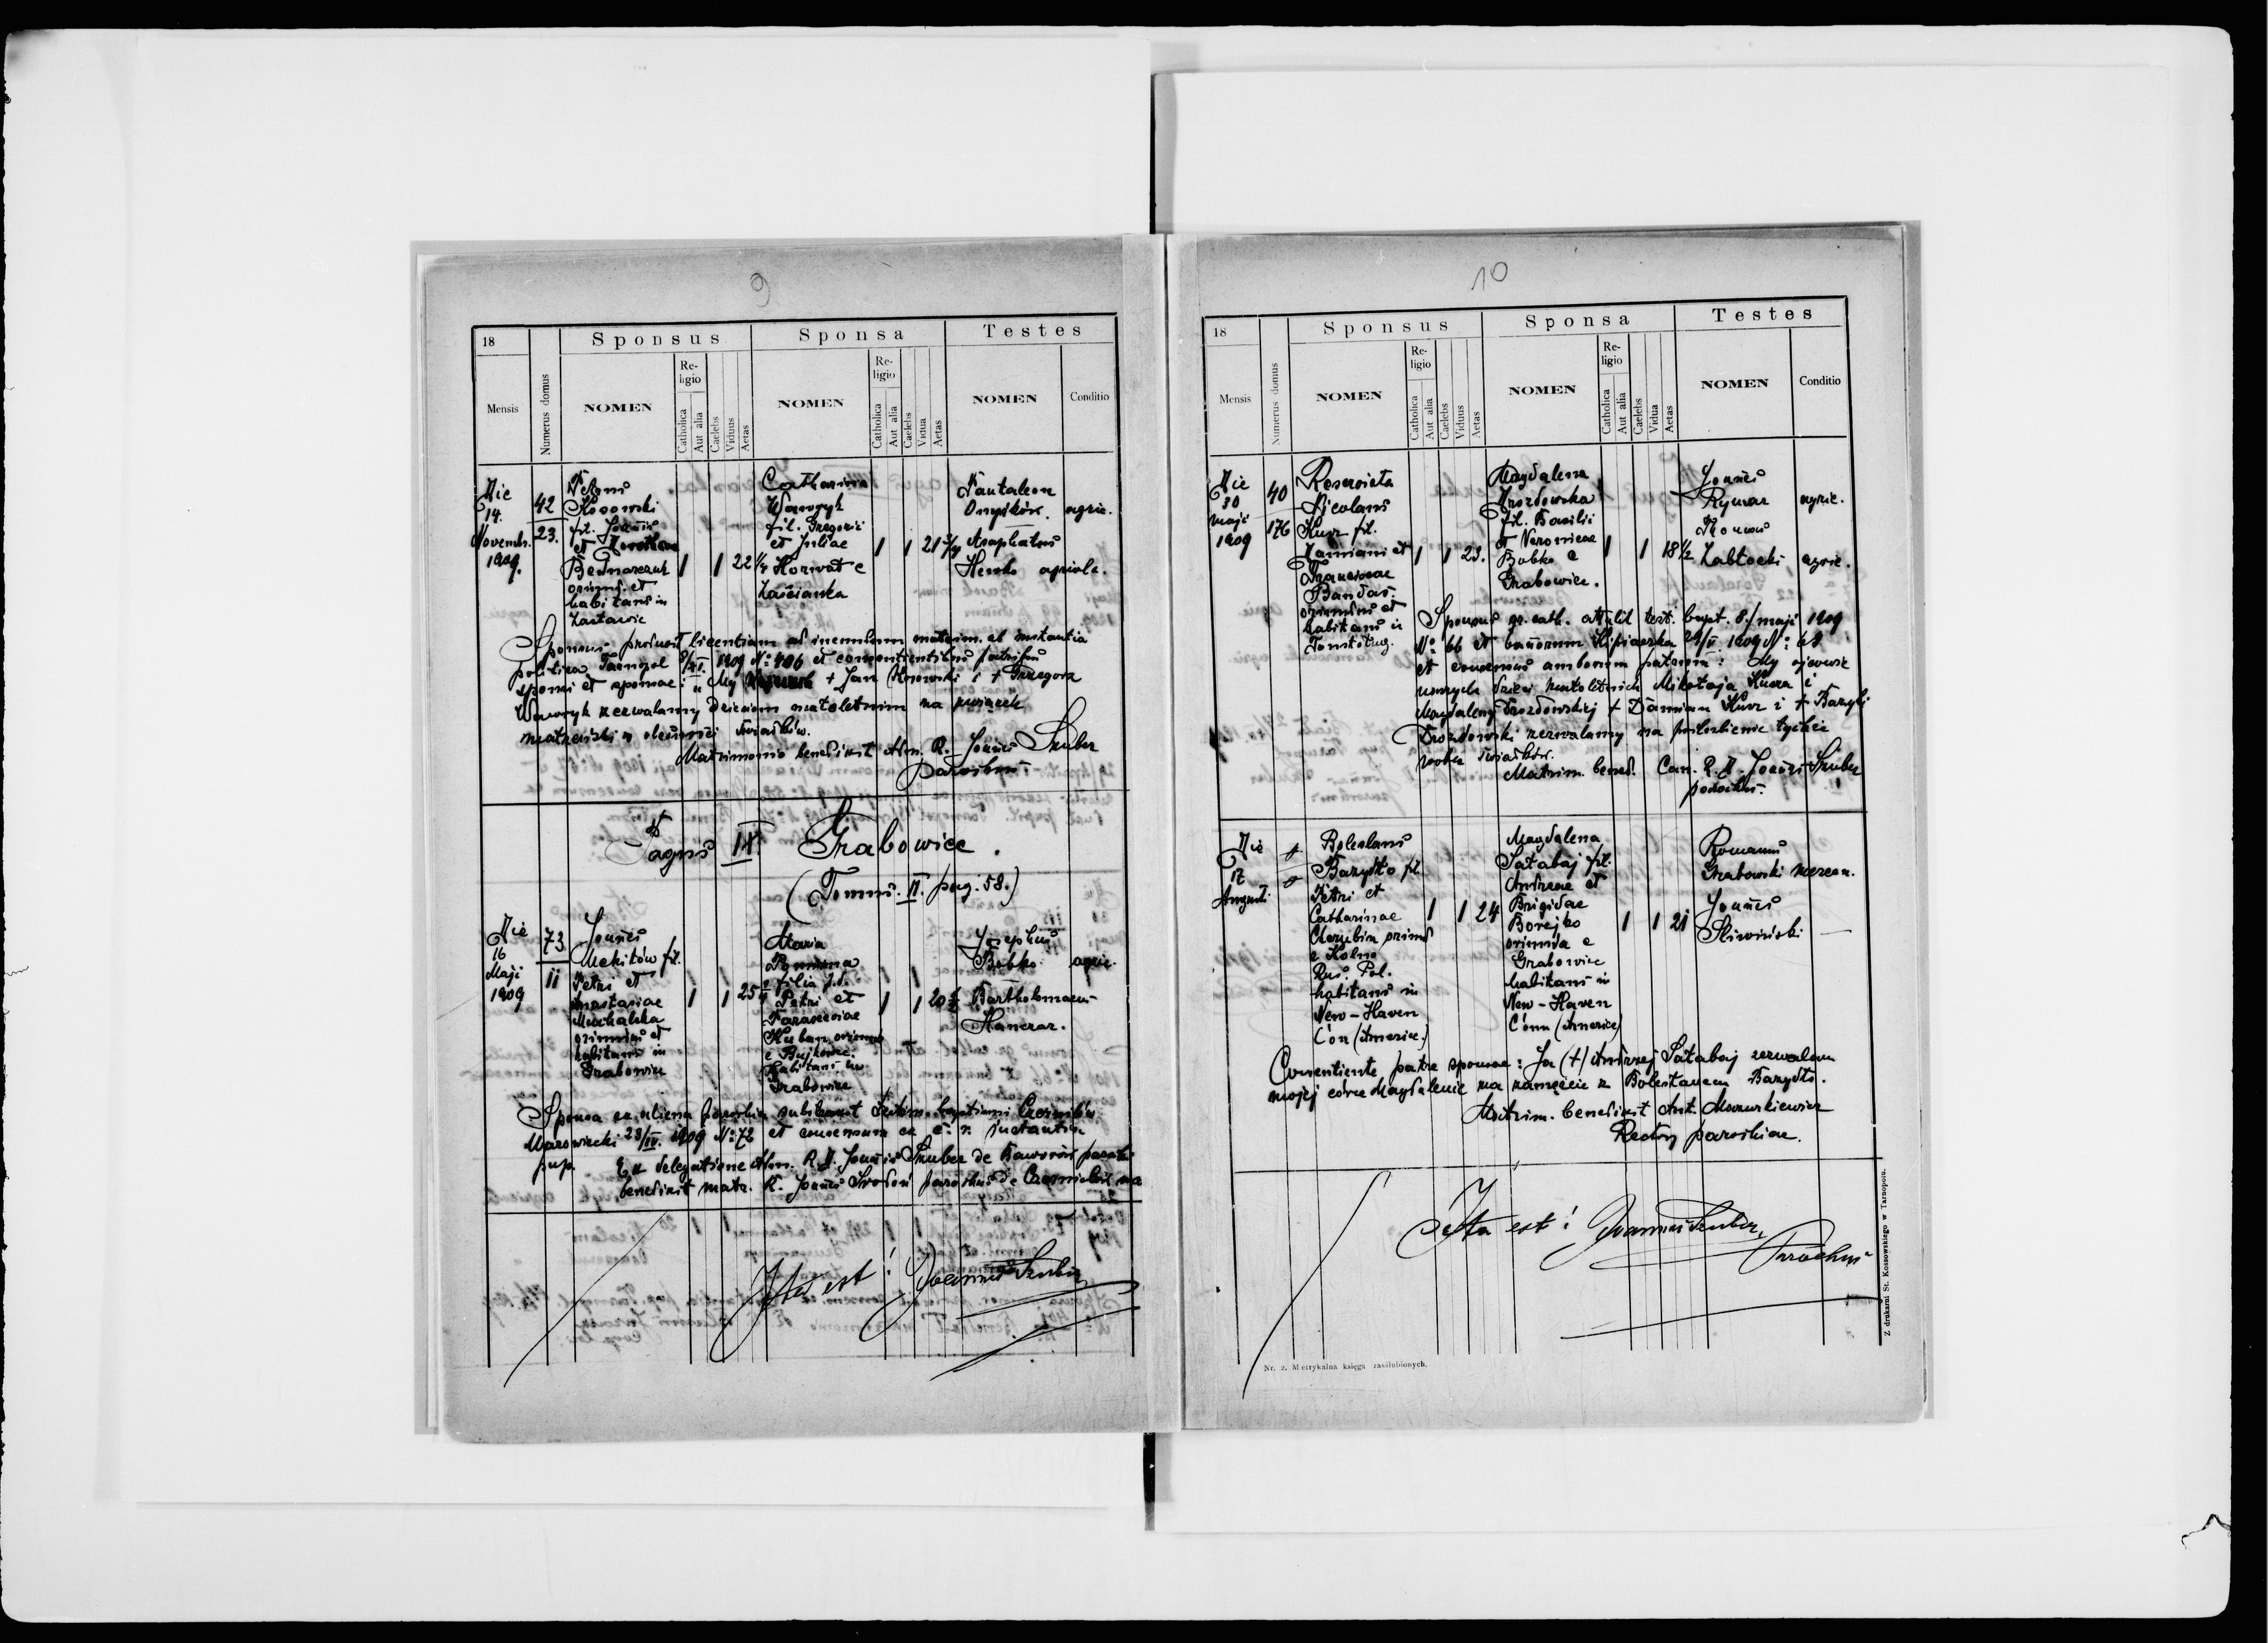 9
18
Sponsus
Sponsa
Testes
Mensis
Numerus domus
NOMEN
Religio
Catholica
Aut alia
Caelebs
Viduus
Aetas
NOMEN
Religio
Catholica
Aut alia
Caelebs
Vidua
Aetas
NOMEN
Conditio
Die
14.
Novembr.
1909.
42
23.
Petrus
Kosowski
fil. Joannis
et
Bednarczuk
oriund. et
habitans in
Zastawie
1 1 22 1/4
Catharina
Wawryk
fil. Gregorii
et Juliae
Horwat e
Zaścianka
1 1 21
Pantaleon
Onyśków. agric.
Asaphatus
Henko agricola.
Sponsus produxit licentiam ad ineundum matrim. ab instantia
politica Tarnopol 8/XI. 1909 No 406 et consentientibus patribus
sponsi et sponsae: "My + Jan Kosowski i + Grzegorz
Wawryk zezwalamy dzieciom małoletnim na związek
małżeński w obecności świadków.
Matrimonio benedixit Adm. R. Joannes Szuber
parochus.
Pagus IX. Grabowiec.
(Tomus. II. pag. 58.)
Die
16
Maji
1909
73
11
Joannes
Mekitów fil.
Petri et
Anastasiae
Muchalska
oriundus et
habitans in
Grabowiec
1 1 25
Maria
filia
Petri et
Parasceviae
Huban oriunda
e Bujkowce.
habitans in
Grabowiec
1 1 20
Josephus
Bobko agric.
Bartholomaeus
Hanczar.
Sponsa ex aliena parochia
23/IV. 1909 No 72 et consensum
Ex delegatione Adm. R. D. Joannis Szuber de Baworów paroch.
benedixit matr. R. Joannes parochus de
Ita est! Joannes Szuber
10
18
Sponsus
Sponsa
Testes
Mensis
Numerus domus
NOMEN
Religio
Catholica
Aut alia
Caelebs
Viduus
Aetas
NOMEN
Religio
Catholica
Aut alia
Caelebs
Vidua
Aetas
NOMEN
Conditio
Die
30
maji
1909
40
176
Reservista
Nicolaus
Kurz fil.
Damiani et
Franciscae
Bandas
oriundus et
habitans in
1 1 23.
Magdalena
Drozdowska
fil. Basilii
et Veronicae
Bobko e
Grabowiec.
1 1 18 1/2
Joannes
Rymar agric.
Thomas
Zabłocki agric.
Sponsus gr. cath. attulit test. bapt. 8/maji 1909
No 66 et bannorum Kipiaczka 29/V. 1909 No 68
et consensus amborum patrum: My ojcowie
naszych dzieci małoletnich Mikołaja Kurza i
Magdaleny Drozdowskiej + Damian Kurz i + Bazyli
Drozdowski zezwalamy na poślubienie tychże
wobec świadków.
Matrim. bened. Can. R. D. Joannes Szuber
parochus.
Die
12
Augusti.
Boleslaus
Bazydło fil.
Petri et
Catharinae
Cherubin oriund
e Kolno
Rus. Pol.
habitans in
New-Haven
Con (Americe.)
1 1 24
Magdalena
Sałabaj fil.
Andreae et
Brigidae
Borejko
oriunda e
Grabowiec
habitans in
New-Haven
Conn (Americe)
1 1 21
Romanus
Grabowski mercen.
Joannes
Śliwiński —
Consentiente patre sponsae: Ja (+) Andrzej Sałabaj zezwalam
mojej córce Magdalenie na zamęście z Bolesławem Bazydło.
Matrim. benedixit Ant. Mazurkiewicz
Rector parochiae.
Ita est! Joannes Szuber,
Parochus
Nr. 2. Metrykalna księga zaślubionych.
Z drukarni St. Kossowskiego w Tarnopolu.